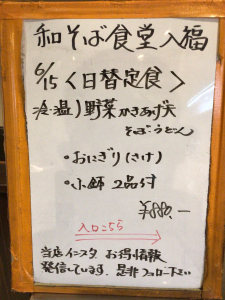 和そば食堂入福
6/15 〈日替定食〉
冷・温)野菜かきあげ天
そば・うどん
・おにぎり(さけ)
・小鉢 2品付
¥880.-
入口こちら
当店インスタ お得情報
発信しています。是非フォロー下さい